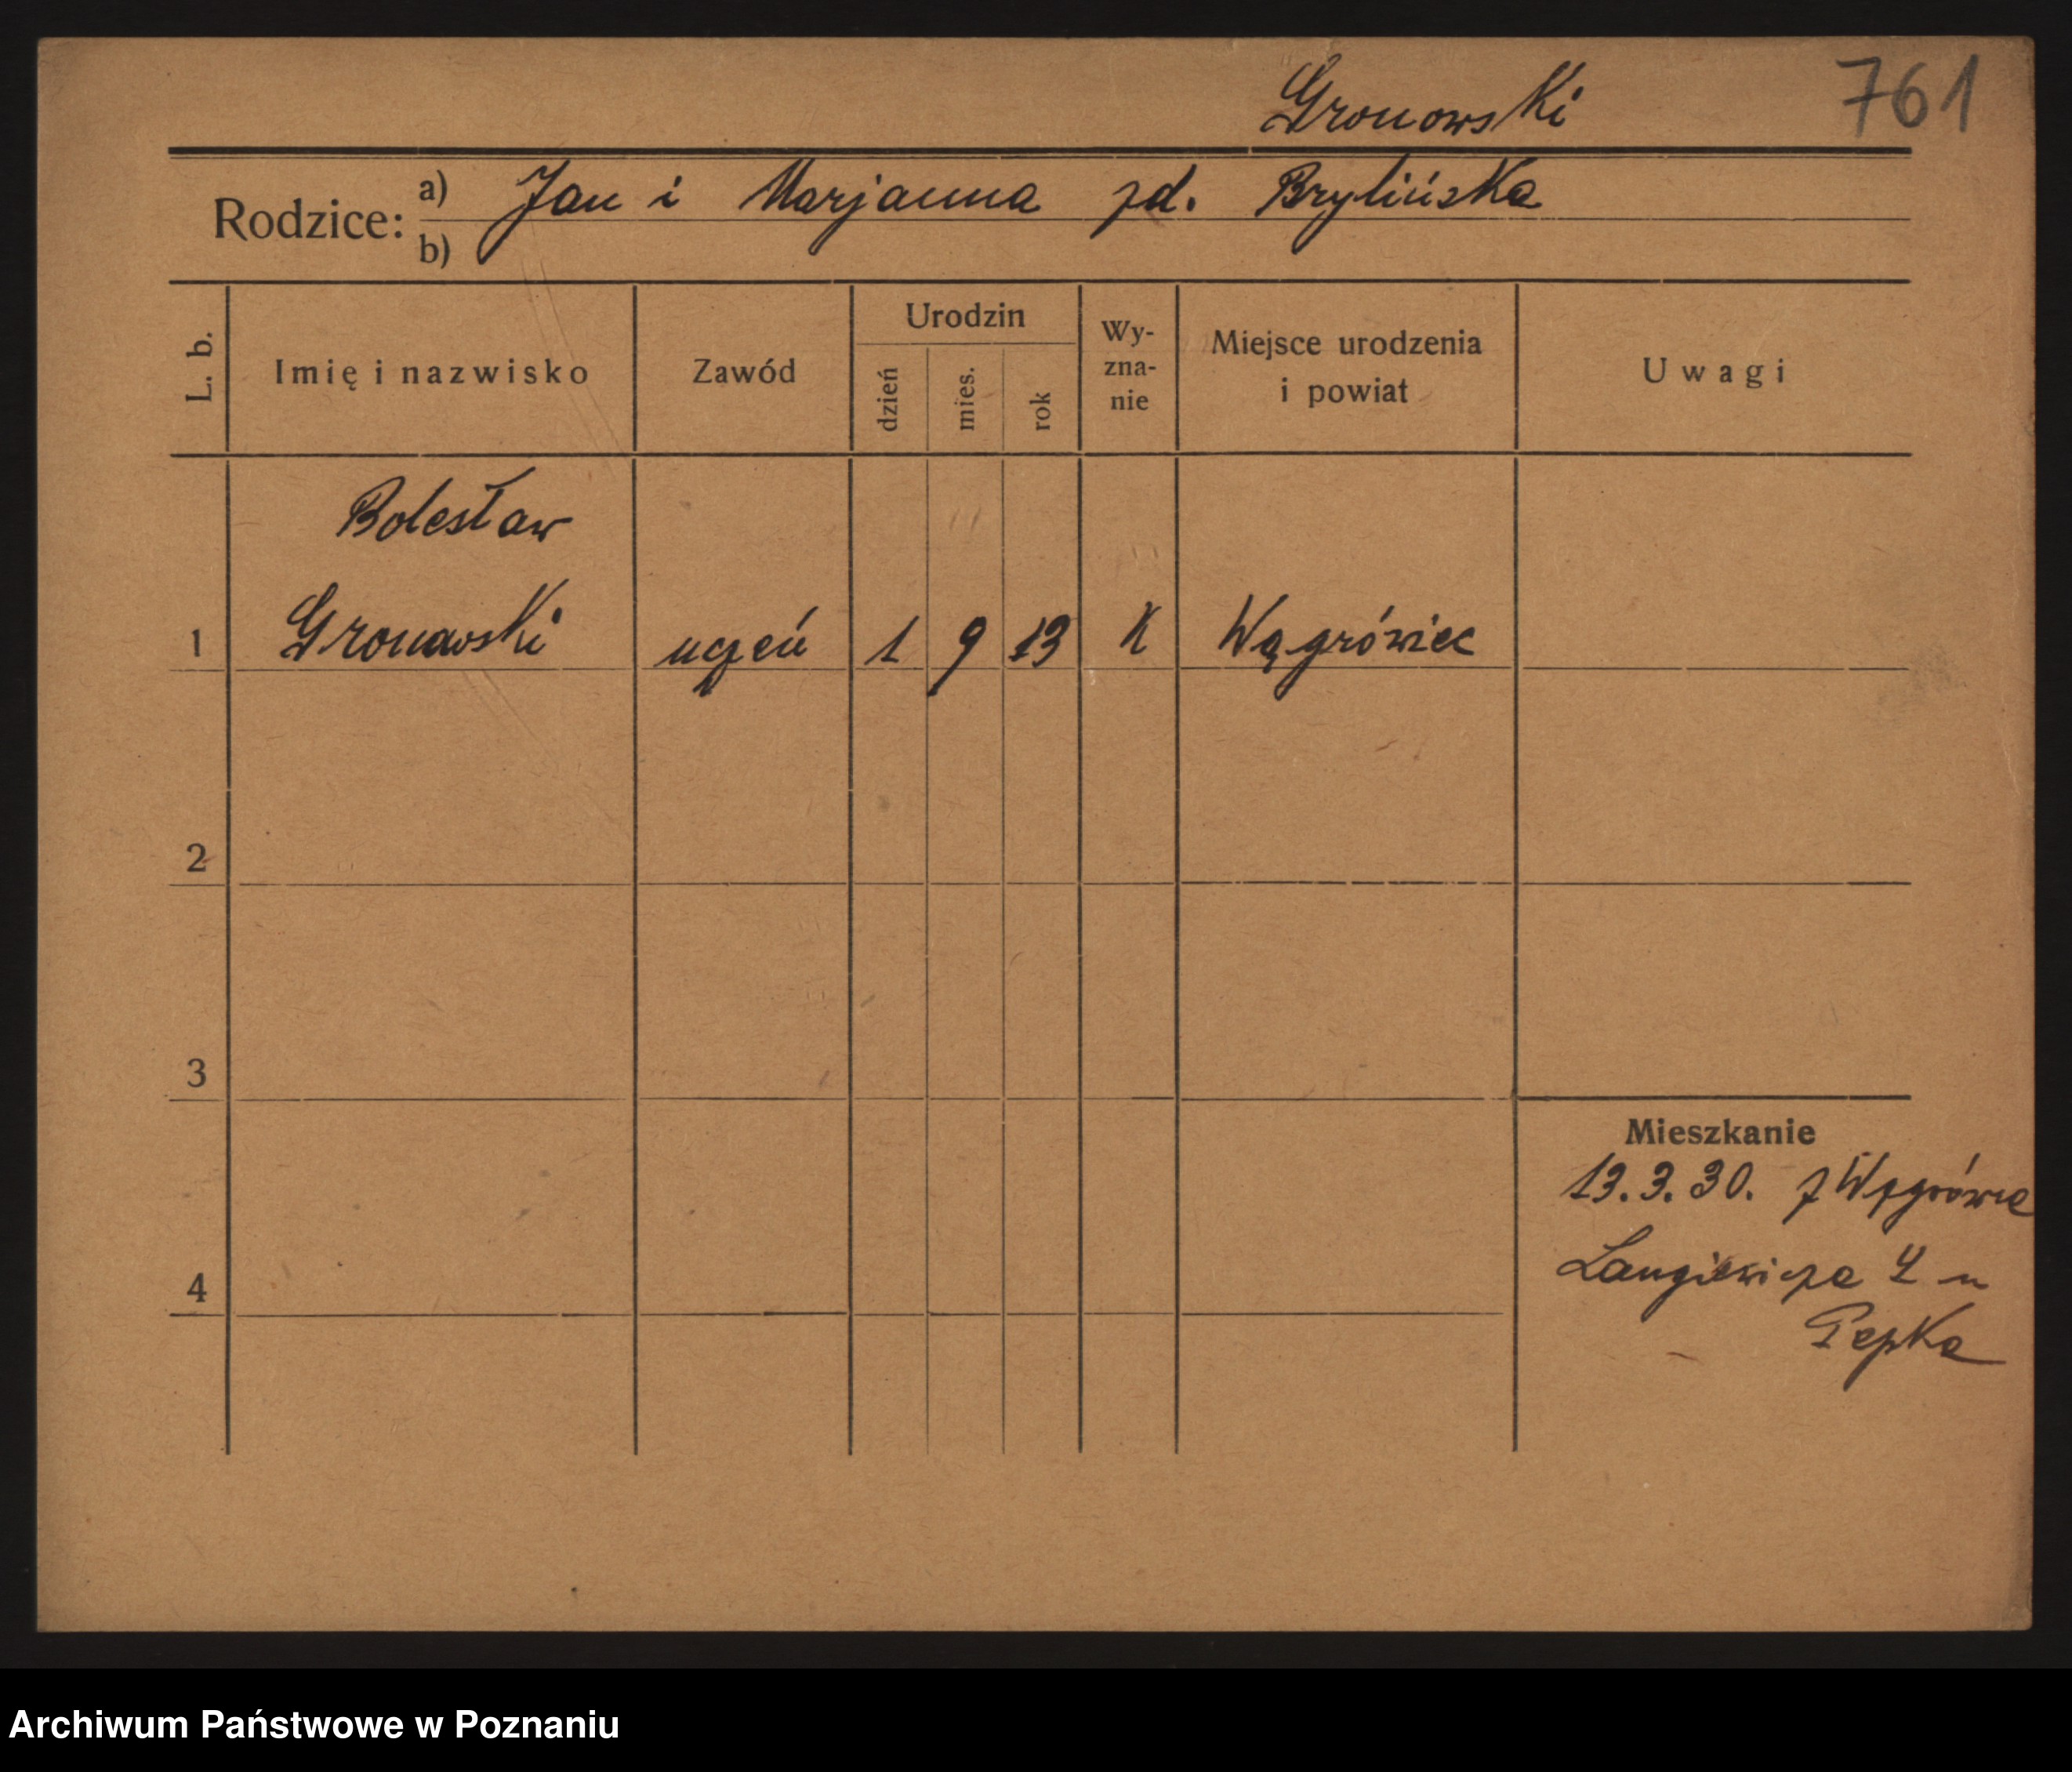 Gronowski 761
Rodzice: a) Jan i Marjanna zd. Brylińska
b)
L. b. Imię i nazwisko Zawód Urodzin dzień mies. rok Wy-zna-nie Miejsce urodzenia i powiat Uwagi
Bolesław
1 Gronowski uczeń 1 9 13 K Wągrówiec
2
3
Mieszkanie
13.3.30. z Wągrówca
4 Langiewicza 4 u
Pepka
Archiwum Państwowe w Poznaniu